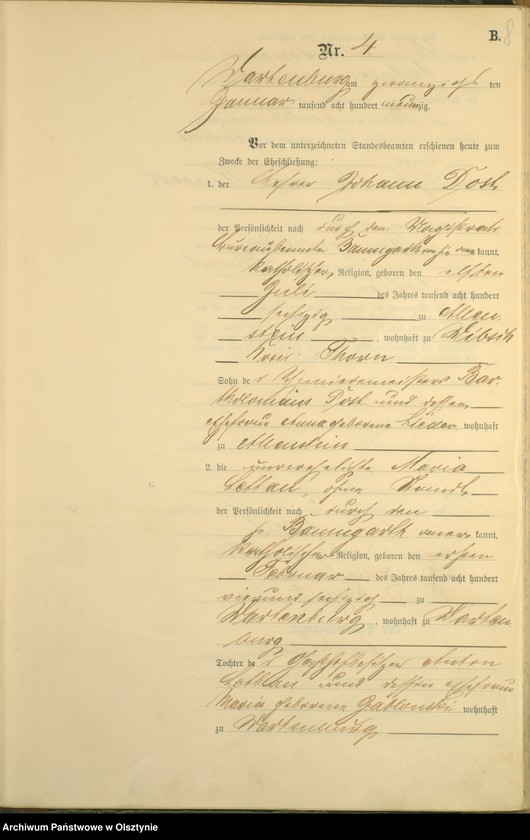 B. 8
Nr. 4.
Wartenburg am zwanzigsten
Januar tausend acht hundert neunzig.
Vor dem unterzeichneten Standesbeamten erschienen heute zum
Zwecke der Eheschließung:
1. der Lehrer Johann Dost
der Persönlichkeit nach durch den
Baumgarth anerkannt,
katholischer Religion, geboren den elften
Juli des Jahres tausend acht hundert
sechszig zu Allen-
stein, wohnhaft zu
Kreis Thorn
Sohn des Schmiedemeisters Bar-
tholomäus Dost und dessen
Ehefrau Anna geborene wohnhaft
zu Allenstein
2. die unverehelichte Maria
Lettau, ohne Stand
der Persönlichkeit nach durch den
p. Baumgarth anerkannt,
katholischer Religion, geboren den ersten
Februar des Jahres tausend acht hundert
vierundsechszig zu
Wartenburg, wohnhaft zu Warten-
burg
Tochter des Anton
Lettau und dessen Ehefrau
Maria geborene Jablonski wohnhaft
zu Wartenburg
Archiwum Państwowe w Olsztynie